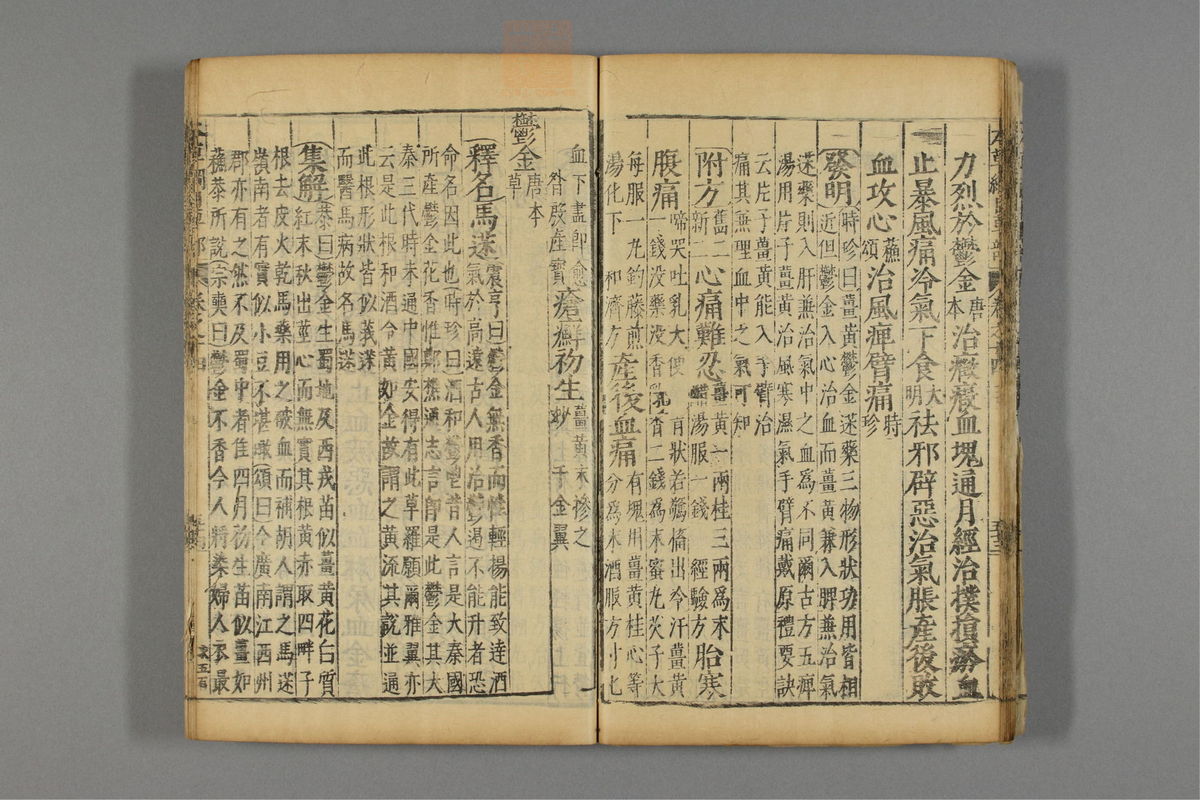 力烈於鬱金唐本治癥瘕血塊通月經治撲損瘀血
止暴風痛冷氣下食大明祛邪辟惡治氣脹產後敗
血攻心蘇頌治風痺臂痛時珍
發明時珍曰薑黃鬱金蒁藥三物形狀功用皆相
近但鬱金入心治血而薑黃兼入脾兼治氣
蒁藥則入肝兼治氣中之血為不同爾古方五痺
湯用片子薑黃治風寒濕氣手臂痛戴原禮要訣
云片子薑黃能入手臂治
痛其無理血中之氣可知
附方舊二新二心痛難忍薑黃一兩桂三兩為末醋湯服一錢經驗方胎寒
腹痛啼哭吐乳大便青狀若驚搐出冷汗薑黃
一錢沒藥沒香乳香二錢為末蜜丸芡子大
每服一丸釣藤煎湯化下和濟方產後血痛有塊用薑黃桂心等分為末酒服方寸匕
血下盡即愈昝殷產寶瘡癬初生薑黃末摻之妙千金翼
鬱金唐本草
釋名馬蒁震亨曰鬱金無香而性輕揚能致達酒
氣於高遠古人用治鬱遏不能升者恐
命名因此也時珍曰酒和鬱鬯昔人言是大秦國
所產鬱金花香惟鄭樵通志言即是此鬱金其大
秦三代時未通中國安得有此草羅願爾雅翼亦
云是此根和酒令黃如金故謂之黃流其說並通
此根形狀皆似莪蒁
而醫馬病故名馬蒁
集解恭曰鬱金生蜀地及西戎苗似薑黃花白質
紅末秋出莖心而無實其根黃赤取四畔子
根去皮火乾馬藥用之破血而補胡人謂之馬蒁
嶺南者有實似小豆不堪噉頌曰今廣南江西州
郡亦有之然不及蜀中者佳四月初生苗似薑如
蘇恭所說宗奭曰鬱金不香今人將染婦人衣最